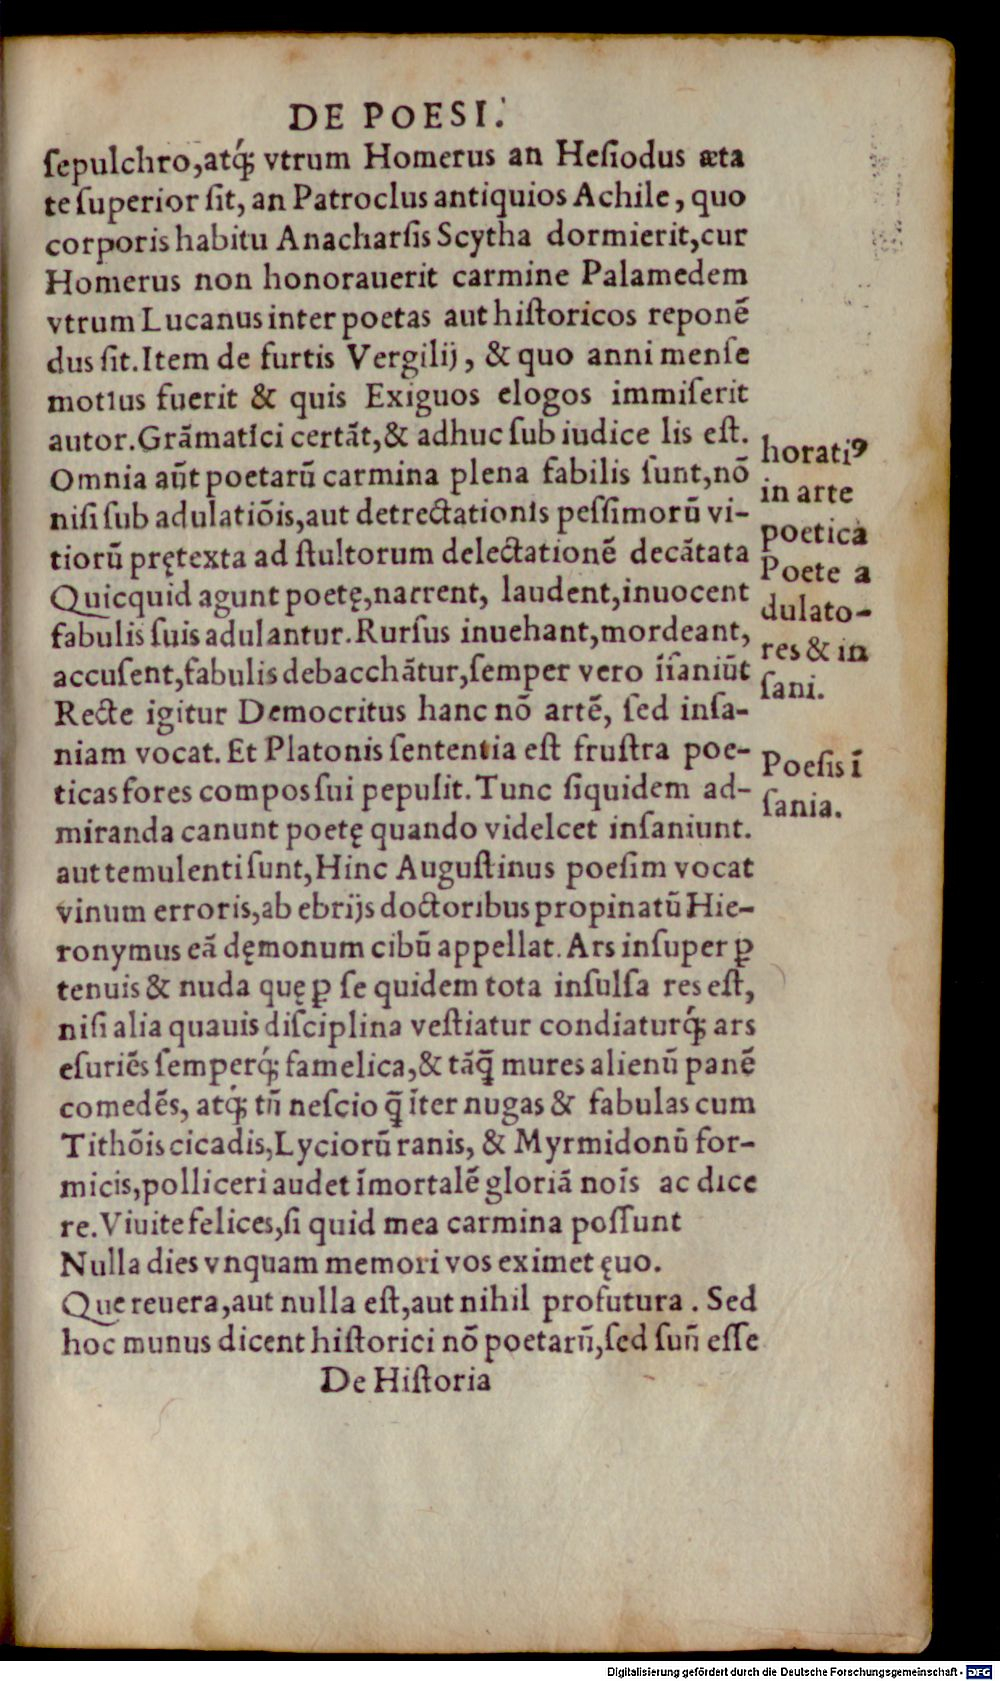 DE POESI.
ſepulchro,atq́; vtrum Homerus an Heſiodus æta
te ſuperior ſit, an Patroclus antiquios Achile, quo
corporis habitu Anacharſis Scytha dormierit,cur
Homerus non honorauerit carmine Palamedem
vtrum Lucanus inter poetas aut hiſtoricos reponē
dus ſit. Item de furtis Vergilij, & quo anni menſe
motıus fuerit & quis Exiguos elogos immiſerit
autor. Grāmatici certāt,& adhuc ſub iudice lis eſt.
Omnia aūt poetarū carmina plena fabilis ſunt,nō
niſi ſub adulatiōis,aut detrectationis peſſimorū vi-
tiorū prętexta ad ſtultorum delectationē decātata
Quicquid agunt poetę,narrent, laudent,inuocent
fabulis ſuis adulantur. Rurſus inuehant,mordeant,
accuſent,fabulis debacchātur,ſemper vero īſaniūt
Recte igitur Democritus hanc nō artē, ſed inſa-
niam vocat. Et Platonis ſententia eſt fruſtra poe-
ticas fores compos ſui pepulit. Tunc ſiquidem ad-
miranda canunt poetę quando videlcet inſaniunt.
aut temulenti ſunt,Hinc Auguſtinus poeſim vocat
vinum erroris,ab ebrijs doctoribus propinatū Hie-
ronymus eā dęmonum cibū appellat. Ars inſuper ꝑ
tenuis & nuda quę ꝑ ſe quidem tota inſulſa res eſt,
niſi alia quauis diſciplina veſtiatur condiaturq́; ars
eſuriēs ſemperq́; famelica,& tāꝙ̄ mures alienū panē
comedēs, atq́; tn̄ neſcio ꝙ̄ īter nugas & fabulas cum
Tithōis cicadis,Lyciorū ranis, & Myrmidonū for-
micis,polliceri audet īmortalē gloriā noīs ac dice
re. Viuite felices,ſi quid mea carmina poſſunt
Nulla dies vnquam memori vos eximet ęuo.
Que reuera,aut nulla eſt,aut nihil profutura. Sed
hoc munus dicent hiſtorici nō poetarū,ſed ſuū eſſe
De Hiſtoria
horatiꝰ
in arte
poetica
Poete a
dulato-
res & in
ſani.
Poeſis ī
ſania.
Digitalisierung gefördert durch die Deutsche Forschungsgemeinschaft - DFG